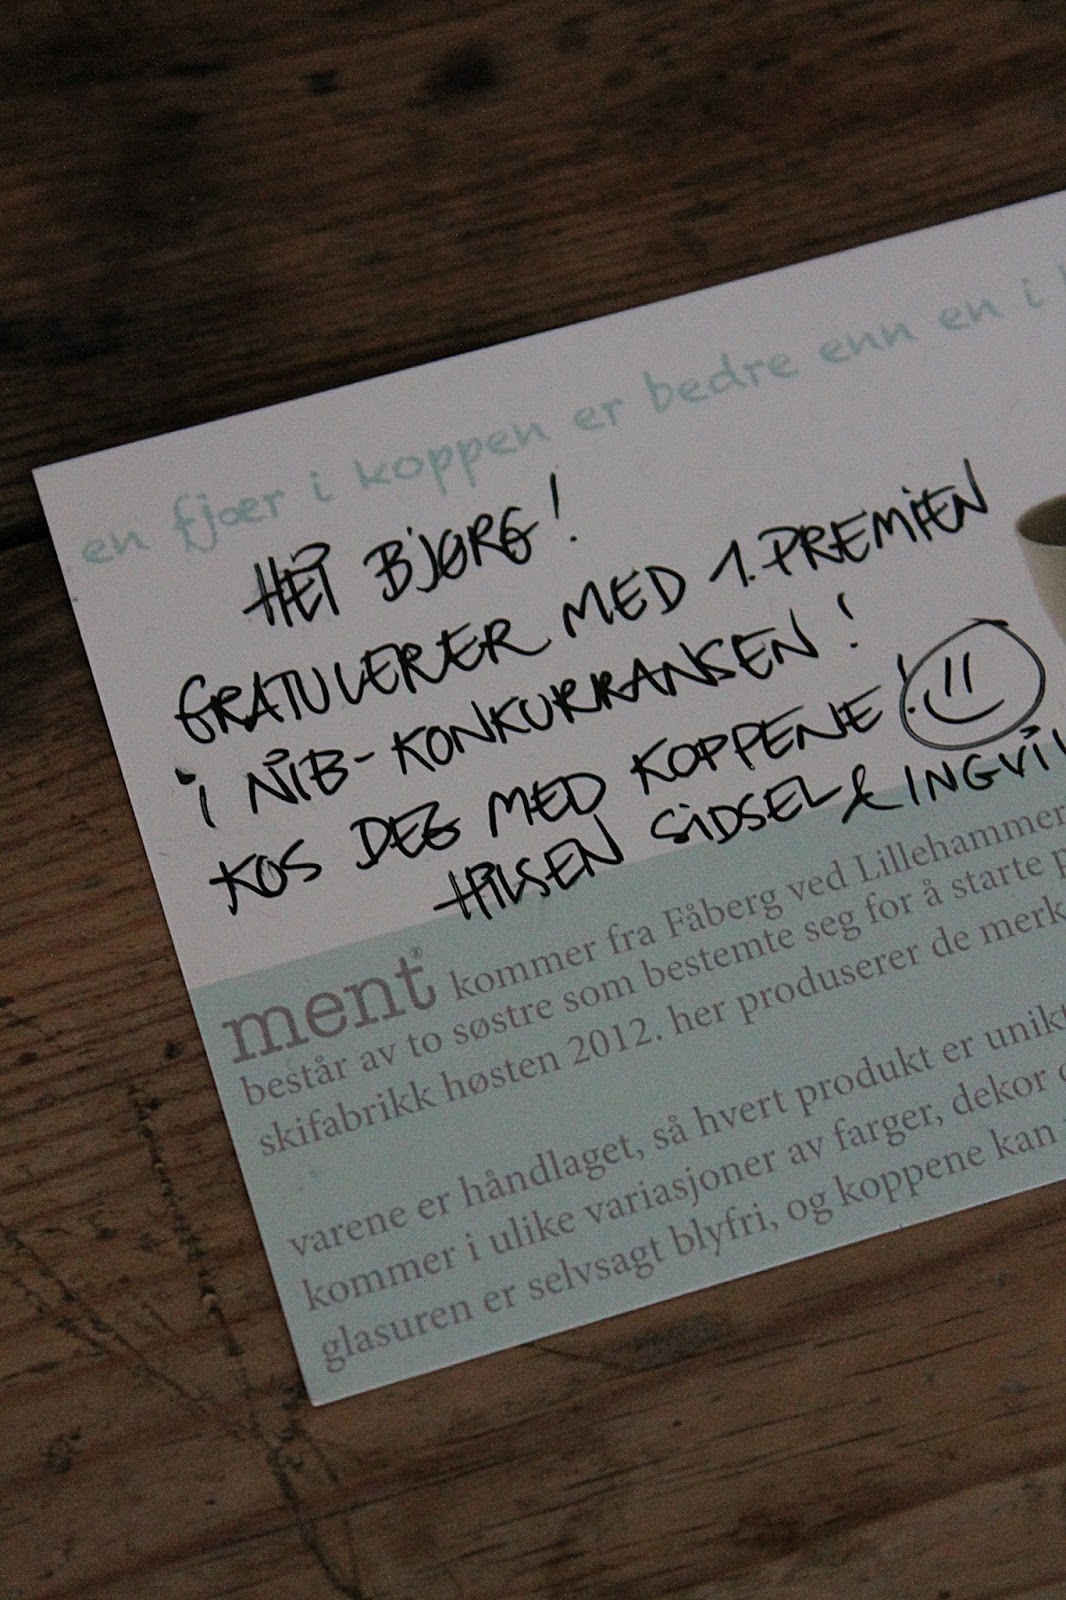 en fjær i koppen er bedre enn en i
HEI BJØRG!
GRATULERER MED 1. PREMIEN
i NIB-KONKURRANSEN!
KOS DEG MED KOPPENE!
HILSEN SIDSEL & INGVIL
ment® kommer fra Fåberg ved Lillehammer
består av to søstre som bestemte seg for å starte
skifabrikk høsten 2012. her produserer de merk
varene er håndlaget, så hvert produkt er unikt
kommer i ulike variasjoner av farger, dekor
glasuren er selvsagt blyfri, og koppene kan